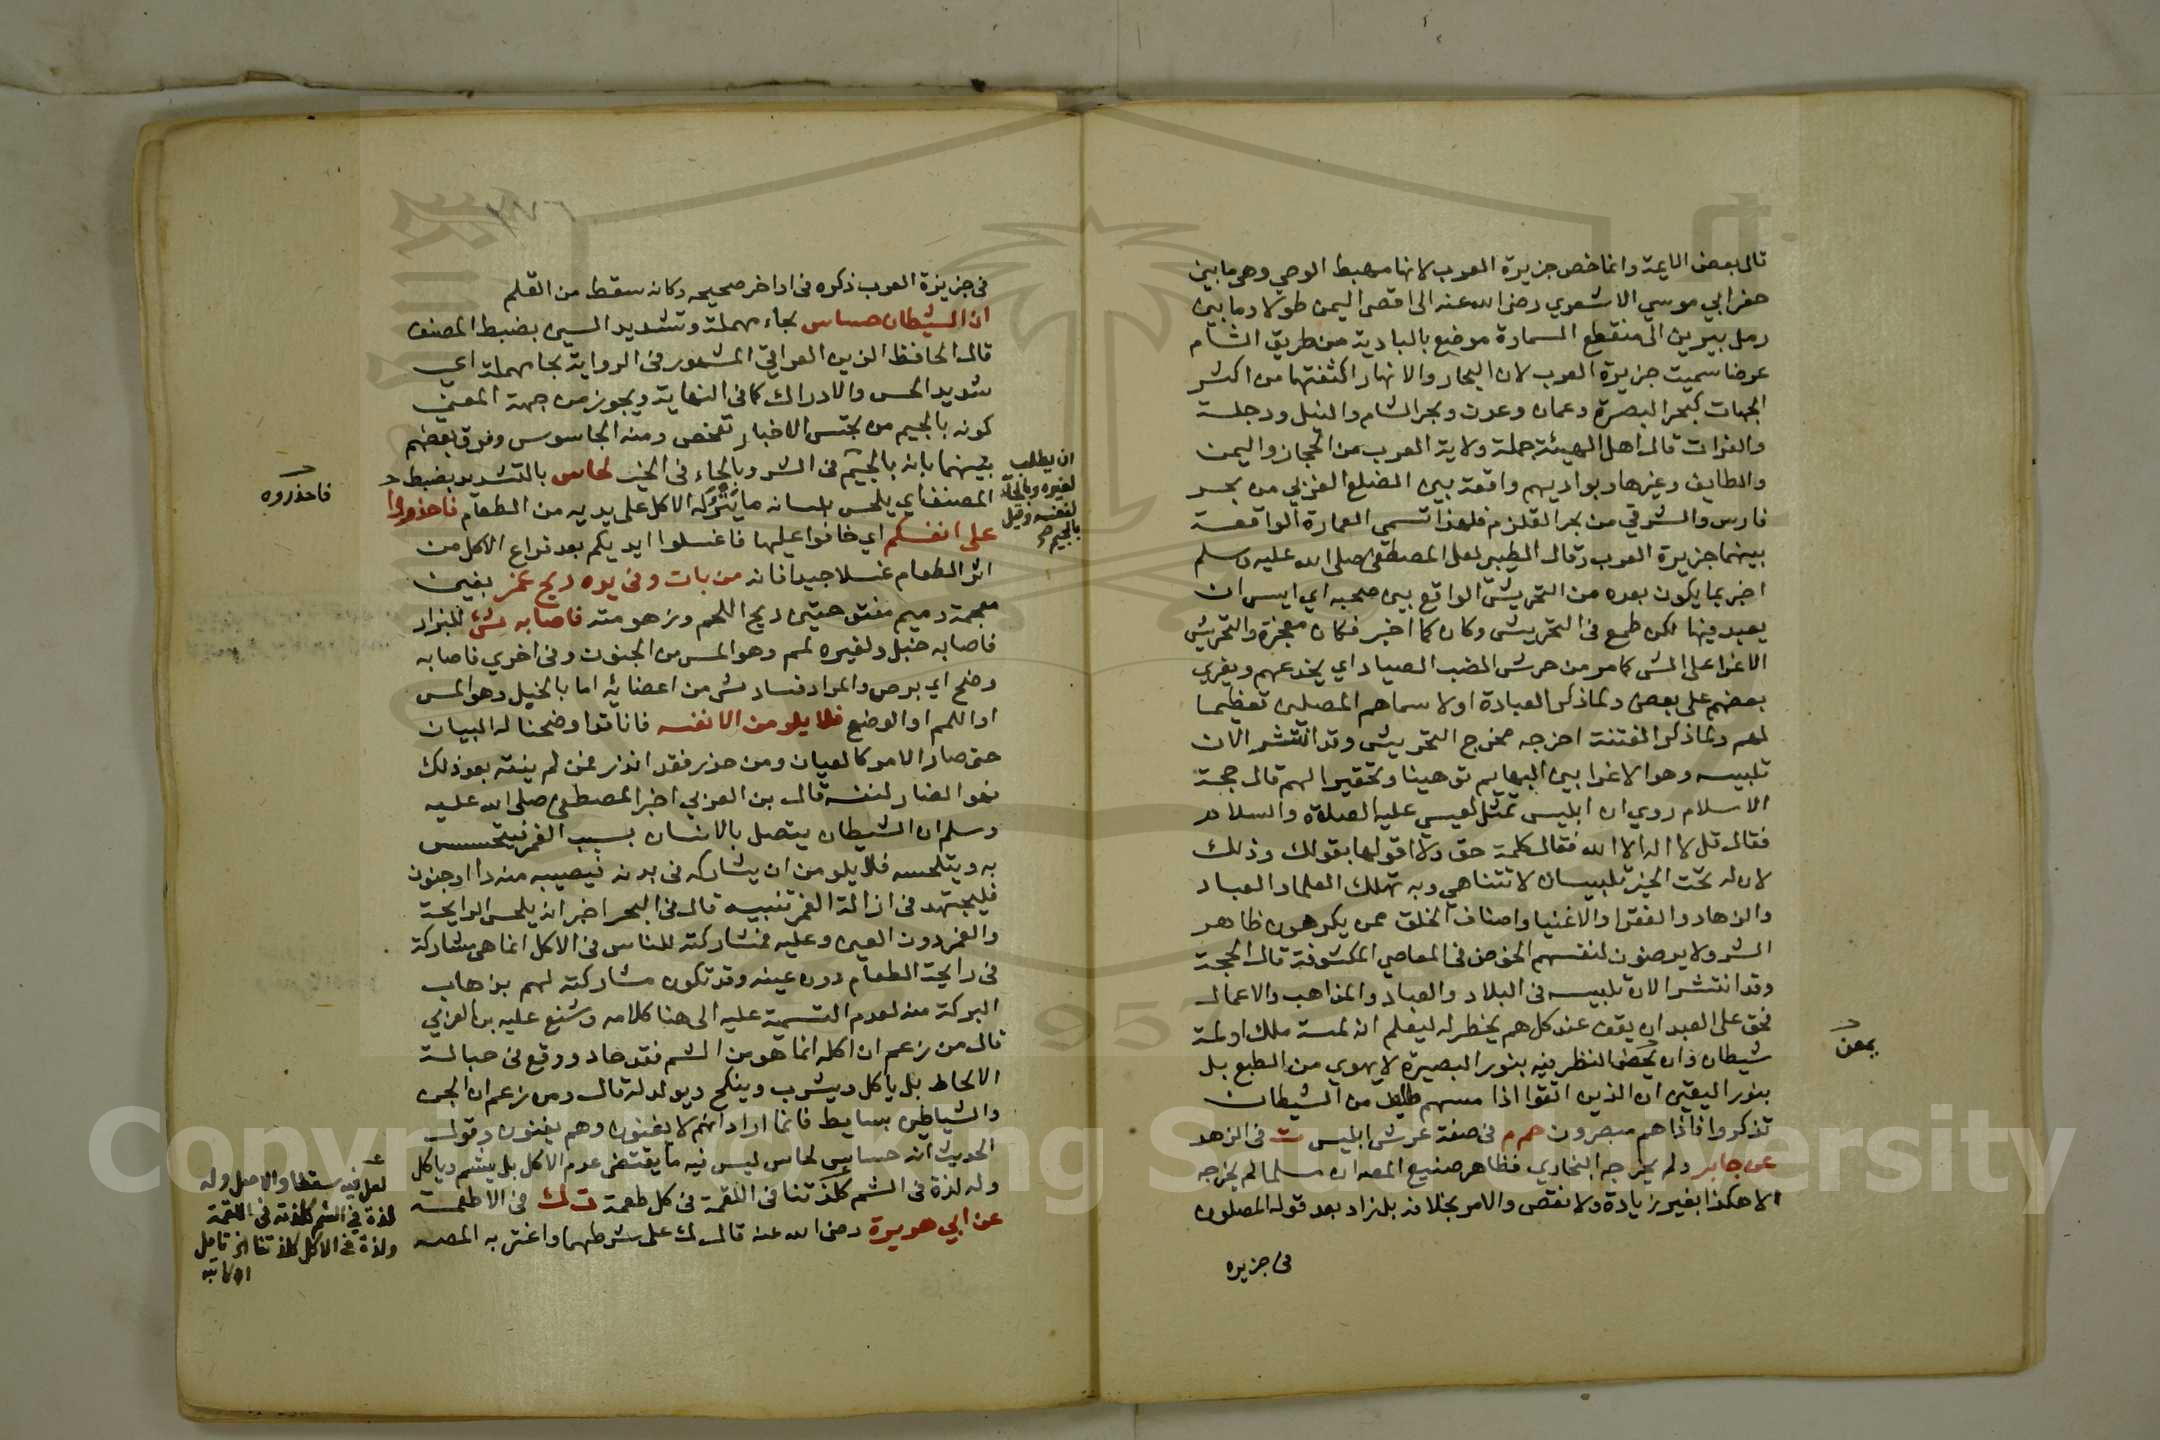 قال بعض الايمة وانما خص جزيرة العرب لانها مهبط الوحي وهي ما بين
حفر ابي موسي الاشعري رضي الله عنه الي اقصي اليمن طولا وما بين
رمل يبرين الي منقطع السمارة موضع بالبادية من طريق الشام
عرضا سميت جزيرة العرب لان البحار والانهار اكتنفتها من اكثر
الجهات كبحر البصرة وعمان وعدن وبحر الشام والنيل ودجلة
والفرات قال اهل الهيئة جملة ولاية العرب من الحجاز واليمن
والطايف وغيرها وبواديهم واقعة بين الضلع الغربي من بحر
فارس والشرقي من بحر القلزم فلهذا تسمي العمارة الواقعة
بينهما جزيرة العرب وقال الطيبي لعل المصطفي صلي الله عليه وسلم
اخبر بما يكون بعده من التحريش الواقع بين صحبه اي ايس ان
يعبد فيها لكن طمع في التحريش وكان كما اخبر فكان معجزة والتحريش
الاغرا علي الشي كما مر من حرش الضب الصياد اي يخدعهم ويغري
بعضهم علي بعض ولما ذكر العبادة اولا سماهم المصلين تعظيما
لهم ولما ذكر الفتنة اخرجه مخرج التحريش وقد انتشر الان
تلبيسه وهو الاغرا بين البهايم توهينا وتحقيرا لهم قال حجة
الاسلام روي ان ابليس تمثل لعيسي عليه الصلاة والسلام
فقال قل لا اله الا الله فقال كلمة حق ولا اقولها بقولك وذلك
لان له تحت الخير تلبيسات لا تتناهي وبه تهلك العلما والعباد
والزهاد والفقرا والاغنيا واصناف الخلق ممن يكرهون ظاهر
الشر ولا يرضون لنفسهم الخوض في المعاصي المكشوفة قال الحجة
وقد انتشر الان تلبيسه في البلاد والعباد والمذاهب والاعمال
فحق علي العبد ان يقف عند كل هم يخطر له ليعلم انه لمة ملك او لمة
شيطان وان يمحض النظر فيه بنور البصيرة لا بهوي من الطبع بل
بنور اليقين ان الذين اتقوا اذا مسهم طايف من الشيطان
تذكروا فاذا هم مبصرون حم م في صفة عرش ابليس ت في الزهد
عن جابر ولم يخرجه البخاري فظاهر صنيع المصـ ان مسلما لم يخرجه
الا هكذا بغير زيادة ولا نقص والامر بخلافه بل زاد بعد قوله المصلون
في جزيره
يمعن
في جزيرة العرب ذكره في اواخر صحيحه وكانه سقط من القلم
ان الشيطان حساس بحاء مهملة وتشديد السين بضبط المصنف
قال الحافظ الزين العراقي المشهور في الرواية بحا مهملة اي
شديد الحس والادراك كما في النهاية ويجوز من جهة المعني
كونه بالجيم من تجسس الاخبار تفحص ومنه الجاسوس وفرق بعضهم
بينهما بانه بالجيم في الشر وبالحاء في الخير لحاس بالتشديد بضبط
المصنف اي يلحس بلسانه ما يتركه الاكل علي يديه من الطعام فاحذروا
علي انفسكم اي خافوا عليها فاغسلوا ايديكم بعد فراغ الاكل من
اثر الطعام غسلا جيدا فانه من بات وفي يده ريح غمر بغين
معجمة وميم مفتوحتين ريح اللحم وزهومته فاصابه شي للبزار
فاصابه خبل ولغيره لمم وهو المس من الجنون وفي اخري فاصابه
وضح اي برص والمراد فساد شي من اعضائه اما بالخيل وهو المس
او اللمم او الوضح فلا يلومن الا نفسه فانا قد اوضحنا له البيان
حتي صار الامر كالعيان ومن حذر فقد انذر فمن لم ينته بعد ذلك
فهو الضار لنفسه قال بن العربي اخبر المصطفي صلي الله عليه
وسلم ان الشيطان يتصل بالانسان بسبب الغمر فيتحسس
به ويتلحسه فلا يلومن ان يشاركه في بدنه فيصيبه منه دا او جنون
فليجتهد في ازالة الغمر تنبيه قال في البحر اخبر انه يلحس الرايحة
والغمر دون العين وعليه فمشاركته للناس في الاكل انما هي مشاركة
في رايحة الطعام دون عينه وقد تكون مشاركته لهم بذهاب
البركة منه لعدم التسمية عليه الي هنا كلامه وشنع عليه بن العربي
قال من زعم ان اكله انما هو من الشم فقد حاد ووقع في حبالة
الالحاد بل ياكل ويشرب وينكح ويولد له قال ومن زعم ان الجن
والشياطين بسايط فانما اراد انهم لا يفنون وهم يفنون وقوله
الحديث انه حساس لحاس ليس فيه ما يقتضي عدم الاكل بل يشم وياكل
وله لذة في الشم كلذتنا في اللقمة في كل طعمة ت ك في الاطعمة
عن ابي هريرة رضي الله عنه قال ك علي شرطهما واغتر به المصـ
ان يطلب
لغيره وبالحاء
لنفسه وقيل
بالجيم
فاحذروه
لعل فيه سقطا والاصل وله
لذة في الشم كلذته في اللقمة
ولذة في الاكل كلذتنا الخ تامل
اه كاتبه
Copyright © King Saud University
1957